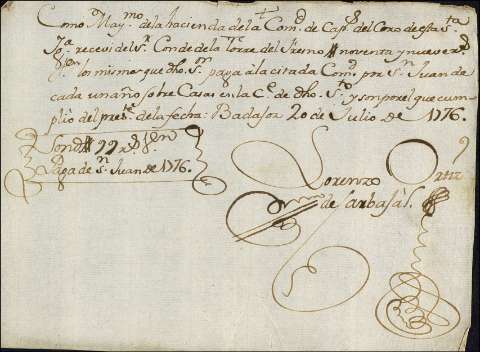 Como May.mo de la hacienda de la Com.d de Cap.s del Coro de esta S.ta
Ig.a recevi del S.r Conde de la Torre del Fresno noventa y nueve r.s
v.on los mismos que dho S.or paga à la citada Com.d por S.n Juan de
cada un año sobre Casas en la C.e de dho S.to y son por el que cum-
plio del pres.te de la fecha: Badajoz 20 de Julio de 1776.
Son 99 r.s v.on
Paga de S.n Juan de 1776.
Lorenzo Ortiz
de Carbajàl.